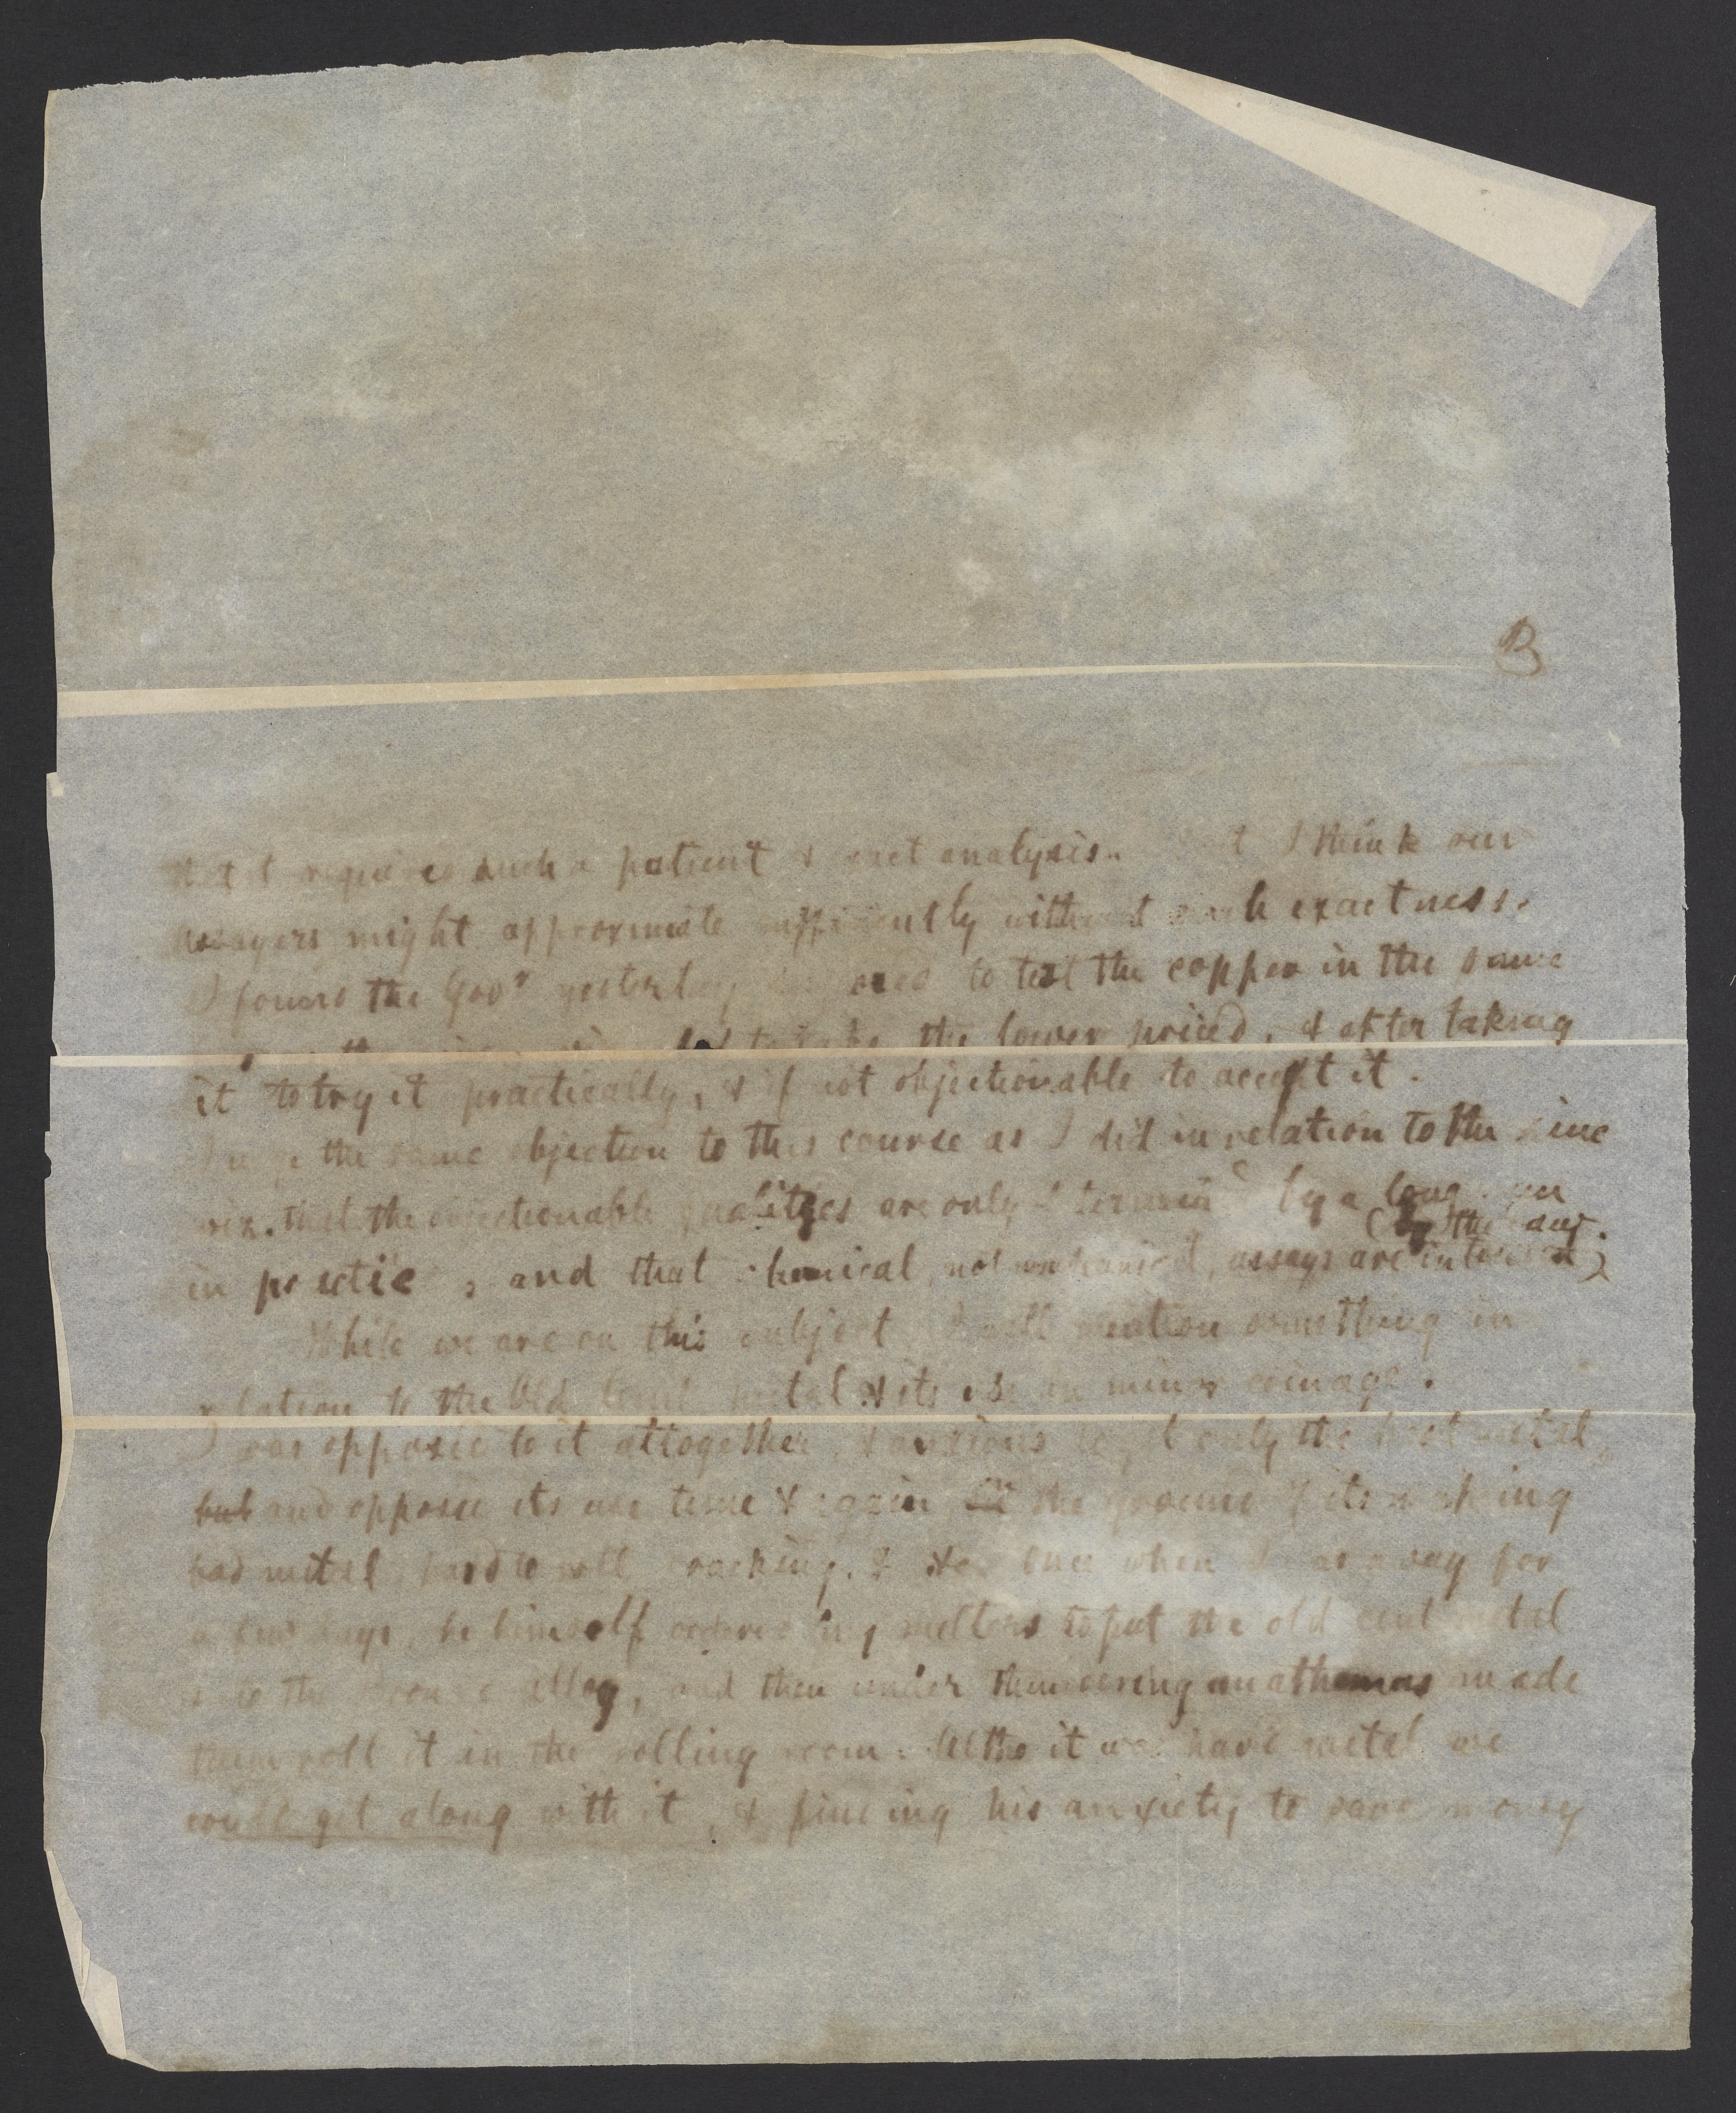 B
that it requires such a patient & exact analysis. I think our
assayers might approximate sufficiently without such exactness.
I found the Gov^r yesterday to test the copper in the same
the lower priced, & after taking
it to try it practically, & if not objectionable to accept it.
I urge the same objection to this course as I did in relation to the zinc
viz. that the objectionable qualities are only by a long run
(by the way.
in practice, and that chemical, not mechanical, assays are
While we are on this subject I will mention something in
relation to the Old Cent metal & its use in minor coinage.
I was opposed to it altogether, & anxious to get only the best metal,
but and opposed its use time & again the ground of its making
bad metal, hard to roll, cracking, & once when I was away for
a few days, he himself ordered my melters to put the old cent metal
into the bronze alloy, and then under thundering anathemas made
them roll it in the rolling room. Altho it was hard metal we
could get along with it, & finding his anxiety to save money